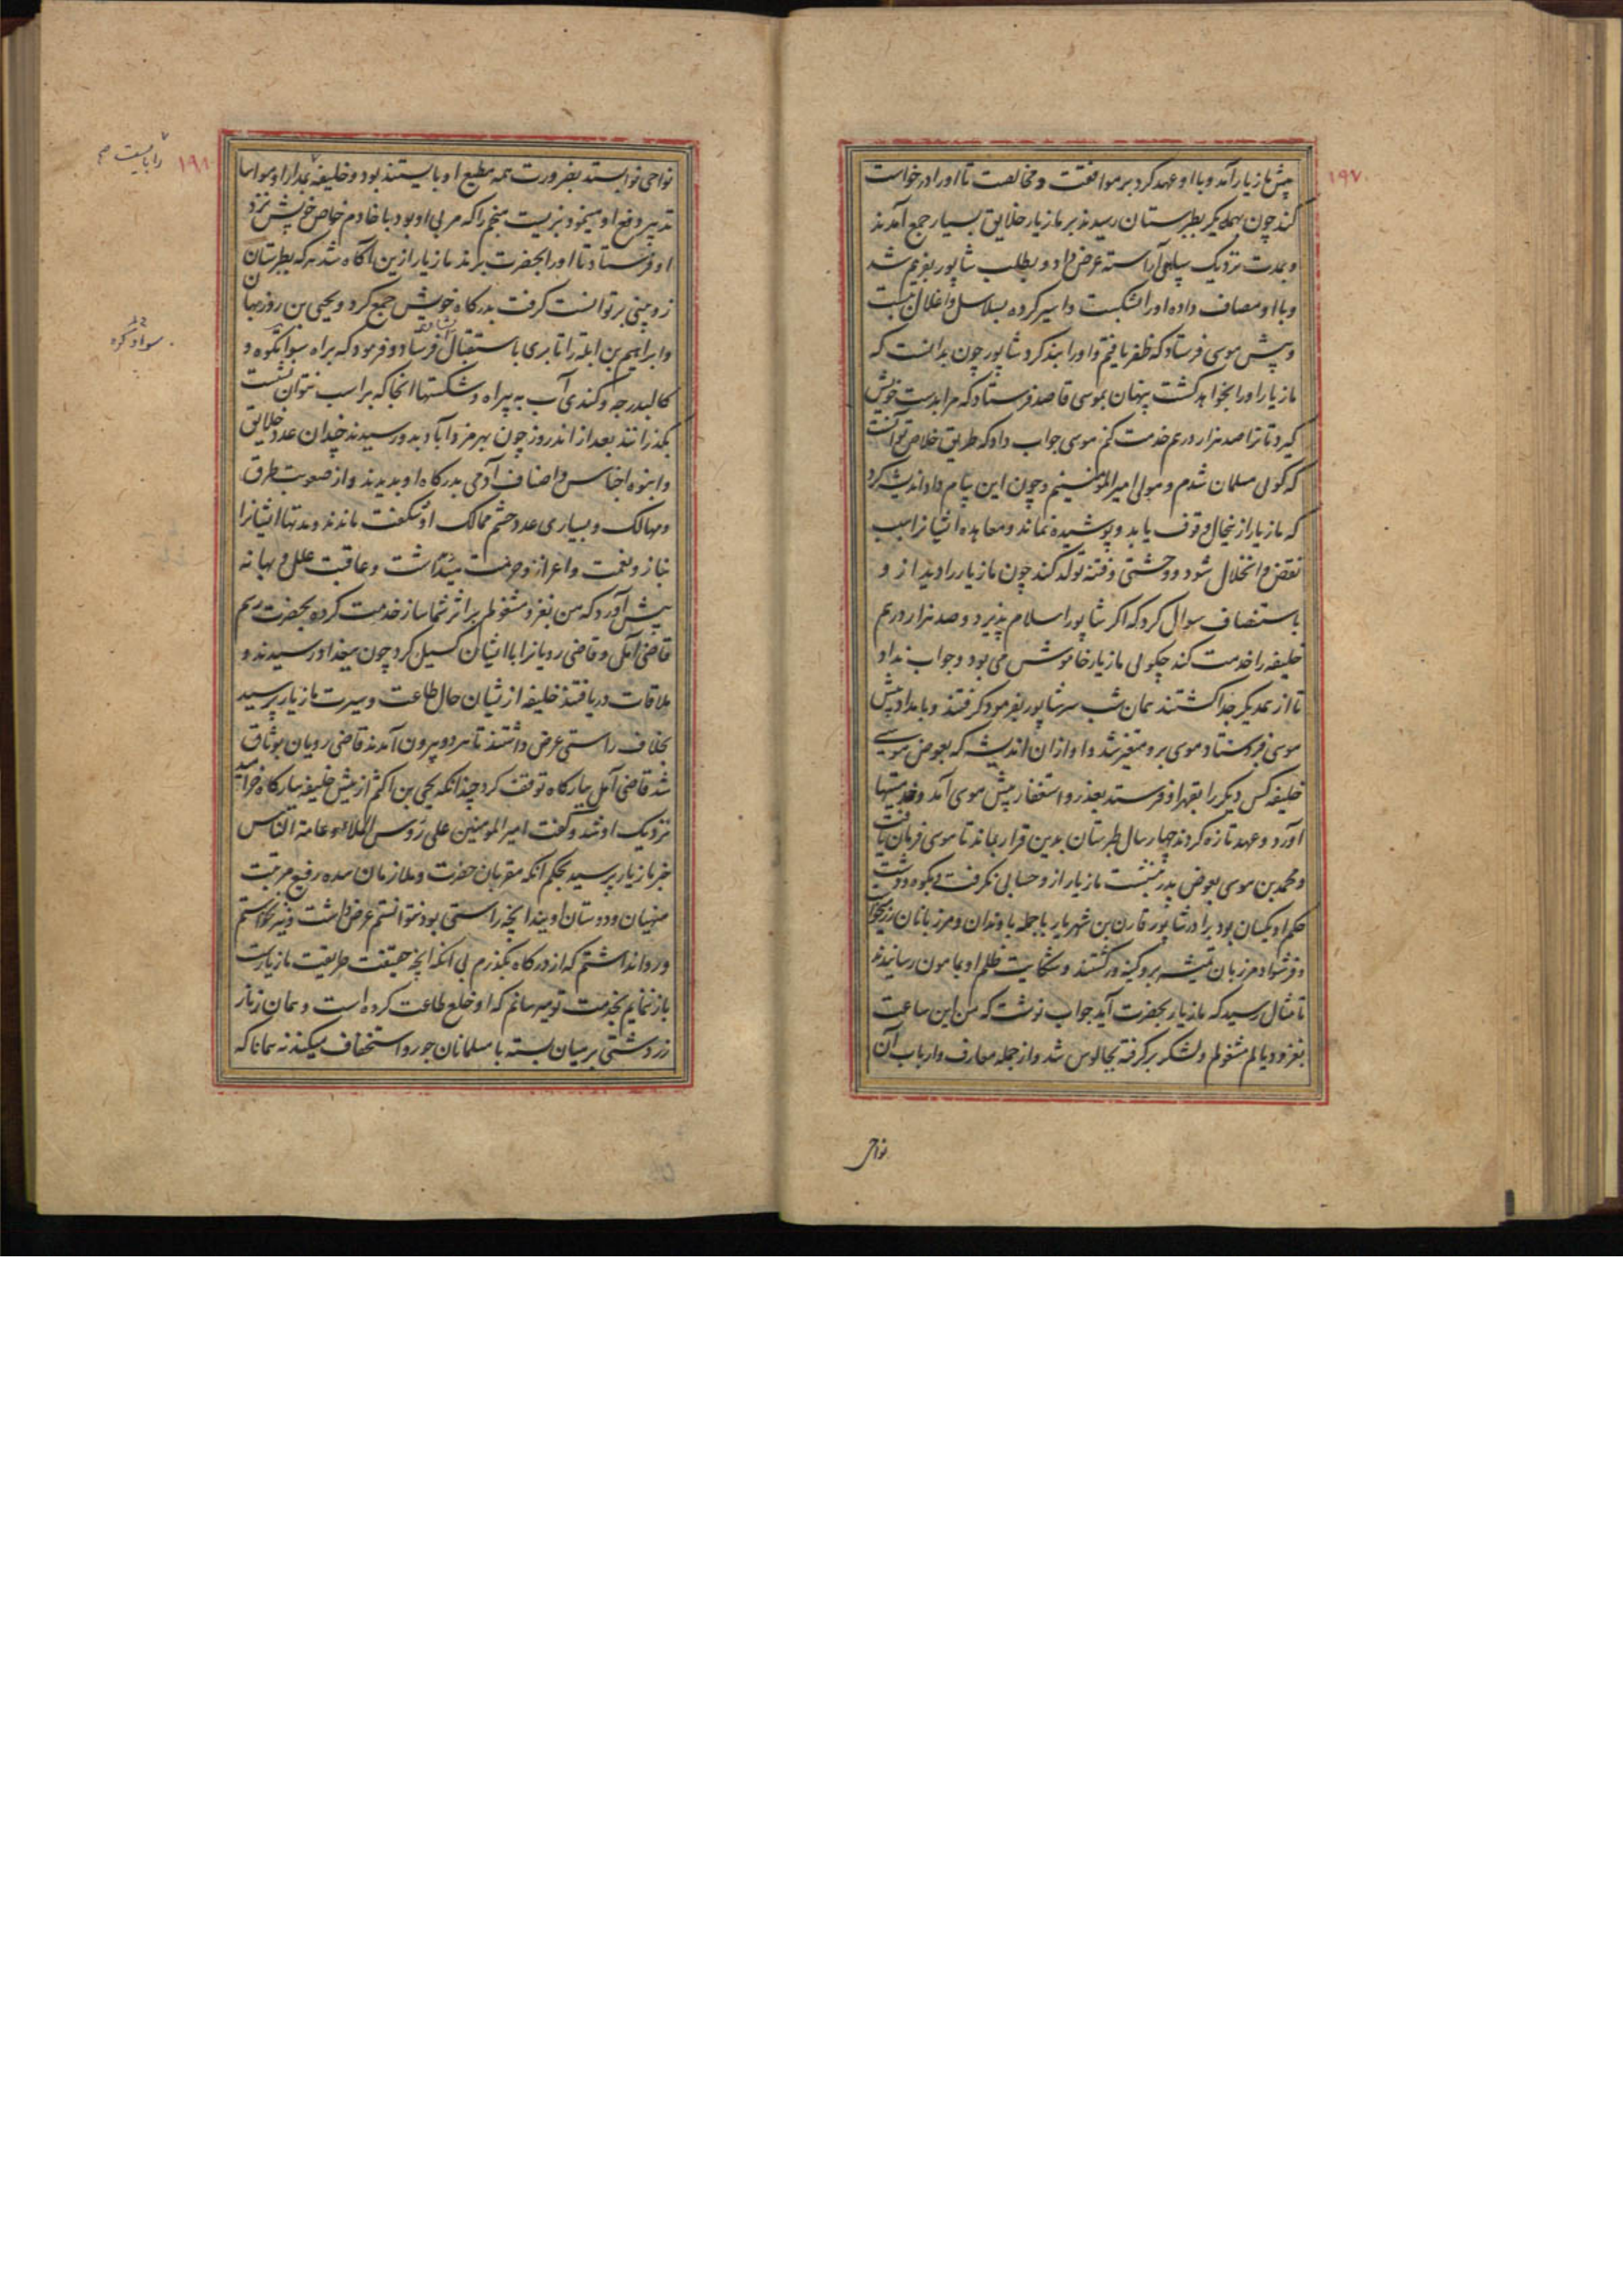 ۱۹۷
پیش مازیار آمد و با او عهد کرد بر موافقت و مخالصت تا او را درخواست
کند چون بهمدیکر بطبرستان رسیدند بر مازیار خلایق بسیار جمع آمدند
و بمدت نزدیک سپاهی آراسته عرض داد و بطلب شاپور بفریم شد
و با او مصاف داده او را شکست و اسیر کرده بسلاسل و اغلال ببست
و پیش موسی فرستاد که ظفر یافتم و او را بند کرد شاپور چون بدانست که
مازیار او را بخواهد کشت پنهان بموسی قاصد فرستاد که مرا بدست خویش
کیر و تا ترا صد هزار درم خدمت کنم موسی جواب داد که طریق خلاص تو آنست
که کوئی مسلمان شدم و مولی امیر المؤمنینم و چون این پیام داد اندیشه کرد
که مازیار از ینحال وقوف یابد و پوشیده نماند و معاهده ایشانرا سبب
نقض و انحلال شود و وحشتی و فتنه تولد کند چون مازیار را دید از و
باستنصاف سوال کرد که اکر شاپور اسلام پذیرد و صد هزار درم
خلیفه را خدمت کند چکوئی مازیار خاموش می بود و جواب نداد
تا از همدیکر جدا کشتند همان شب سر شاپور بفرمود کرفتند و بامداد پیش
موسی فرستاد موسی برو متغیر شد و او ازان اندیشه که بعوض موسی
خلیفه کس دیکر را بقهر او فرستد بعذر و استغفار پیش موسی آمد و خدمتها
آورد و عهد تازه کردند چهار سال طبرستان بدین قرار بماند تا موسی فرمان یافت
و محمد بن موسی بعوض پدر بنشست مازیار از و حسابی نکرفت بکوه و دشت
حکم او یکسان بود برادر شاپور قارن بن شهریار با جمله باوندان و مرزبانان
و فرشواد مرزبان تمیشه برو کینه ور کشتند و شکایت ظلم او بمامون رسانیدند
تا مثال رسید که مازیار بحضرت آید جواب نوشت که من این ساعت
بغزو دیالم مشغولم و لشکر برکرفته بچالوس شد و از جمله معارف و ارباب آن
نواحی
۱۹۸
نواحی نوا بستد بضرورت همه مطیع او بایستند بود و خلیفه بمدارا و مواسا
تدبیر دفع او مینمود بزیست منجم را که مربی او بود با خادم خاص خویش نزد
او فرستاد تا او را بحضرت برند مازیار ازین آکاه شد هرکه بطبرستان
زوپینی بر توانست کرفت بدرکاه خویش جمع کرد و یحیی بن روزبهان
و ابراهیم بن ابله را تا بری باستقبال فرستاد و فرمود که براه سواتکوه و
کالبدرجه و کندی آب به بیراه و شکستها انجا که بر اسب نتوان نشست
بکذرانند بعد از اند روز چون بهرمزداباد بدو رسیدند چندان عدد خلایق
و انبوه اجناس و اصناف آدمی بدرکاه او بدیدند و از صعوبت طرق
و مهالک و بسیاری عدد حشم ممالک او شکفت ماندند و مدتها ایشانرا
بناز و نعمت و اعزاز و حرمت میداشت و عاقبت علل و بهانه
پیش آورد که من بغزو مشغولم بر اثر شما ساز خدمت کرده بحضرت رسم
قاضی آمل و قاضی رویانرا با ایشان کسیل کرد چون ببغداد رسیدند و
ملاقات دریافتند خلیفه از ثیان حال طاعت و سیرت مازیار پرسید
بخلاف راستی عرض داشتند تا هر دو بیرون آمدند قاضی رویان بوثاق
شد قاضی آمل ببارکاه توقف کرد چندانکه یحیی بن اکثم از پیش خلیفه ببارکاه خرامید
نزدیک او شد و کفت امیر المومنین علی رؤس الملاء و عامة الناس
خبر مازیار پرسید بحکم آنکه مقربان حضرت و ملازمان سده رفیع مرتبت
منهیان و دوستان اویند آنچه راستی بود نتوانستم عرض داشت و نیز نخواستم
و روا نداشتم که از درکاه بکذرم بی آنکه آنچه حقیقت طریقت مازیارست
باز نمایم بخدمت تو میرسانم که او خلع طاعت کرده است و همان زنار
زردشتی بر میان بسته با مسلمانان جور و استخفاف میکند نه همانا که